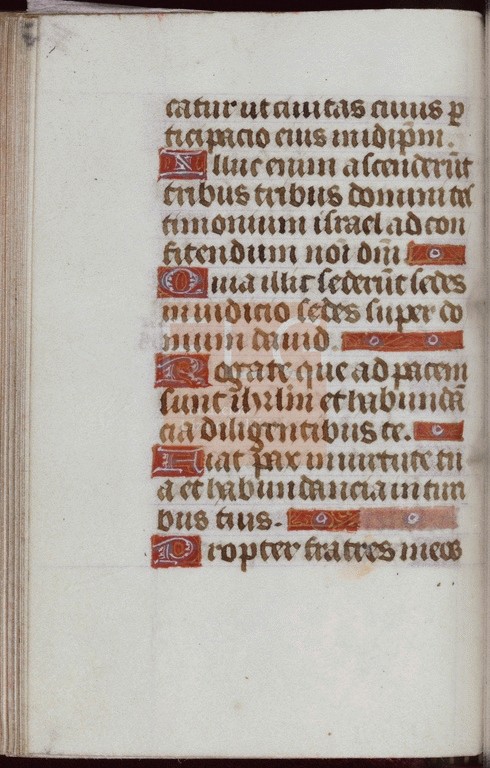 catur ut ciuitas cuius p̱
ticipacio eius in idip̄m.
Illuc enim ascenderūt
tribus tribus domini tes
timonium israel ad con
fitendum noī dn̄i
Quia illic sederūt sedes
in iudicio sedes super do
mum dauid.
Rogate que ad pacem
sunt ih̄rlm̄ et habundā
cia diligentibus te.
Fiat pax in uirtute tu
a et habundancia in turri
bus tuis.
Propter fratres meos